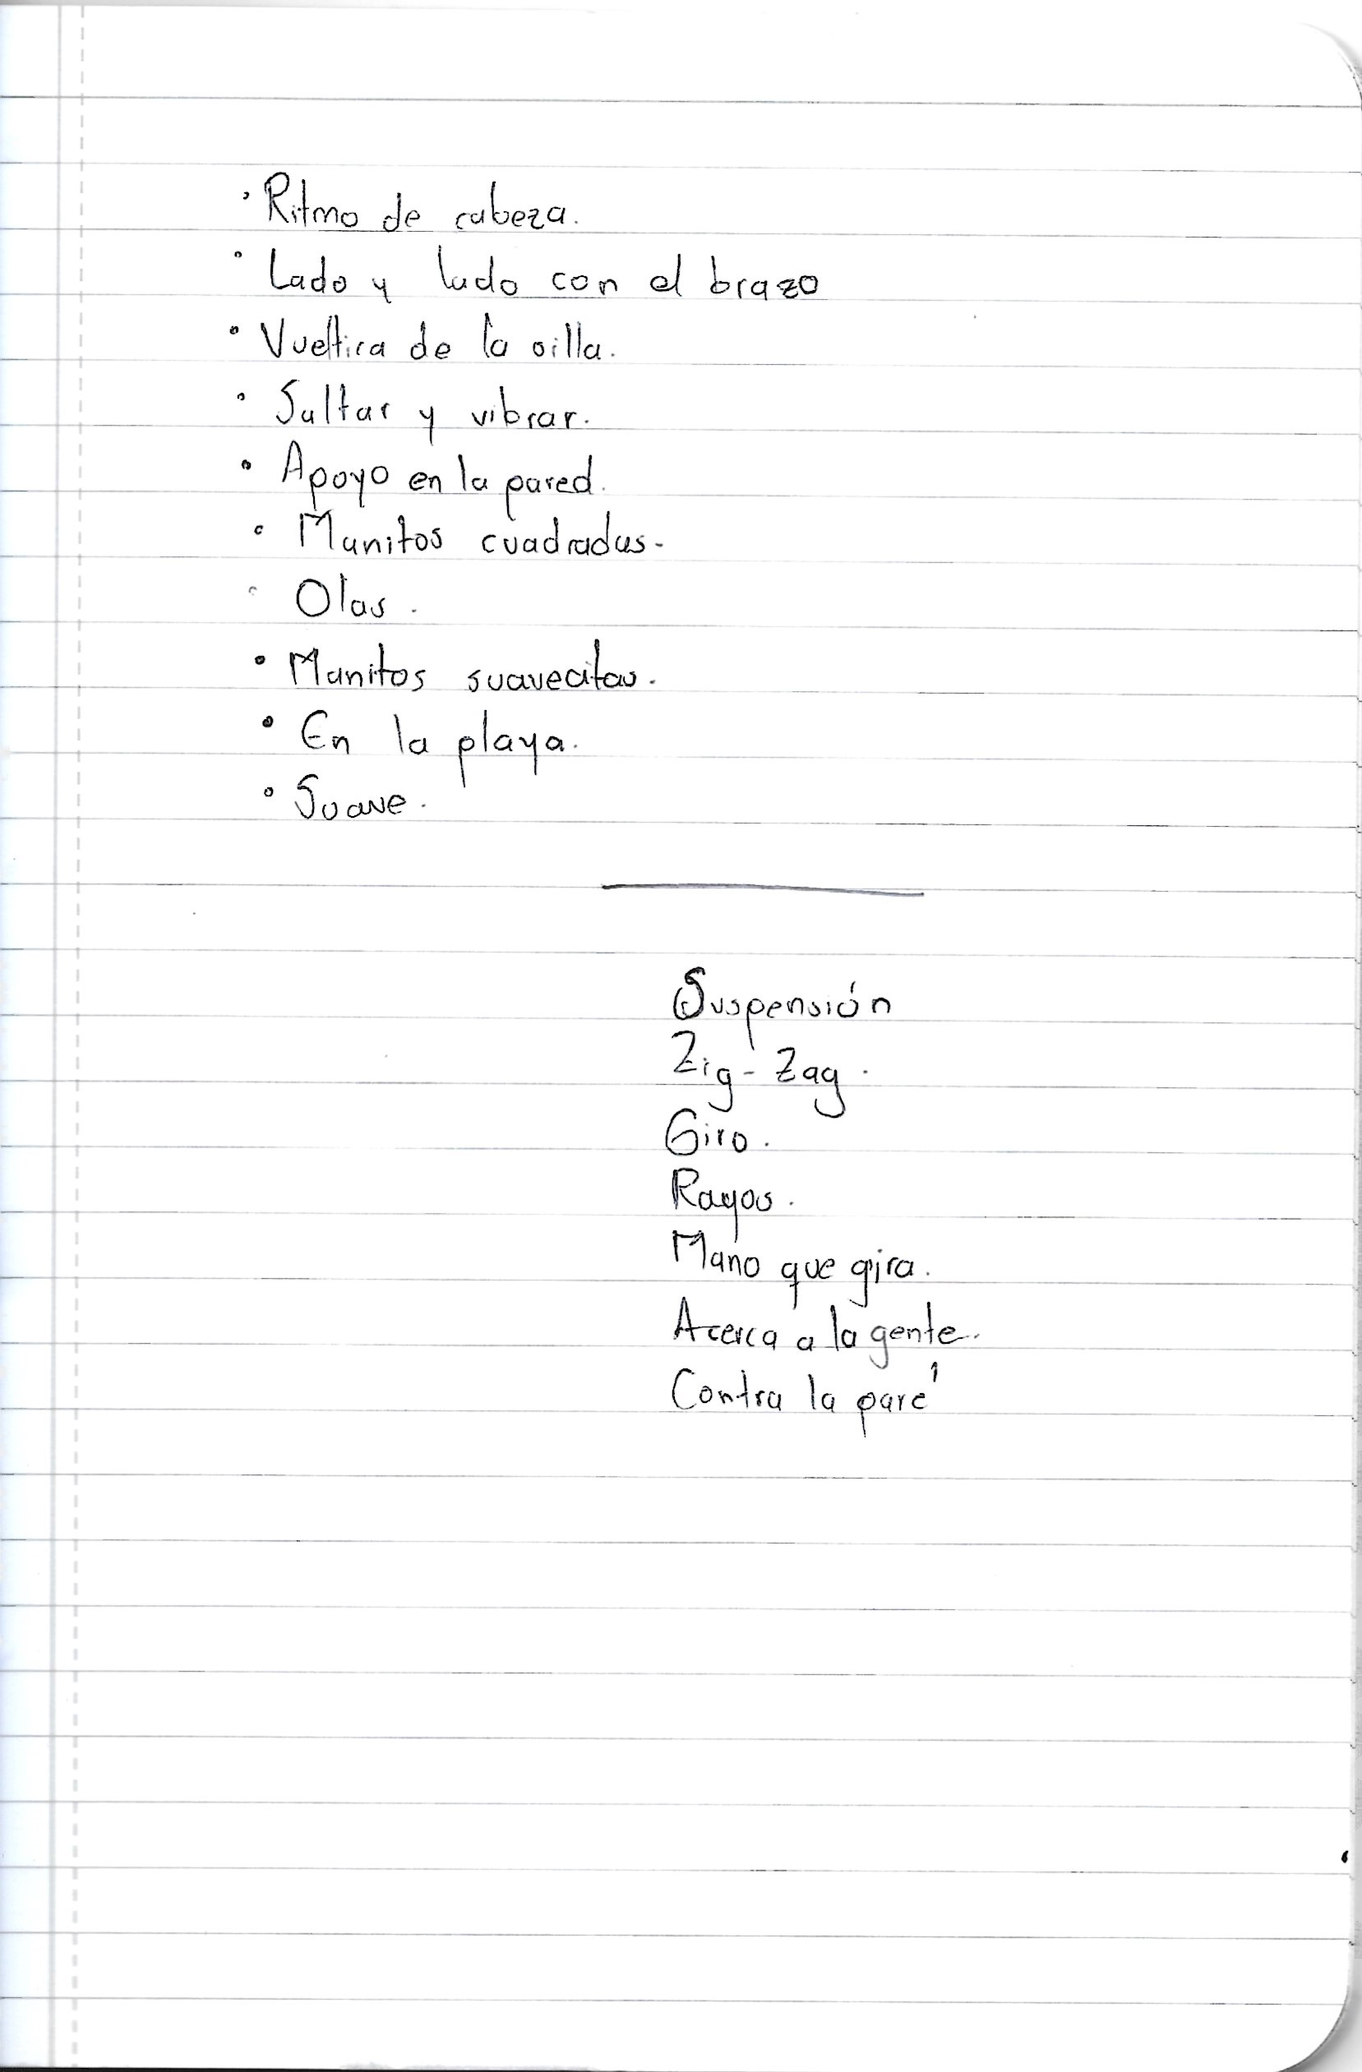 • Ritmo de cabeza.
• Lado y lado con el brazo
• Vueltica de la silla.
• Saltar y vibrar.
• Apoyo en la pared.
• Manitos cuadradas.
• Olas.
• Manitos suavecitas.
• En la playa.
• Suave.
Suspensión
Zig-Zag.
Giro.
Rayos.
Mano que gira.
Acerca a la gente.
Contra la pare'